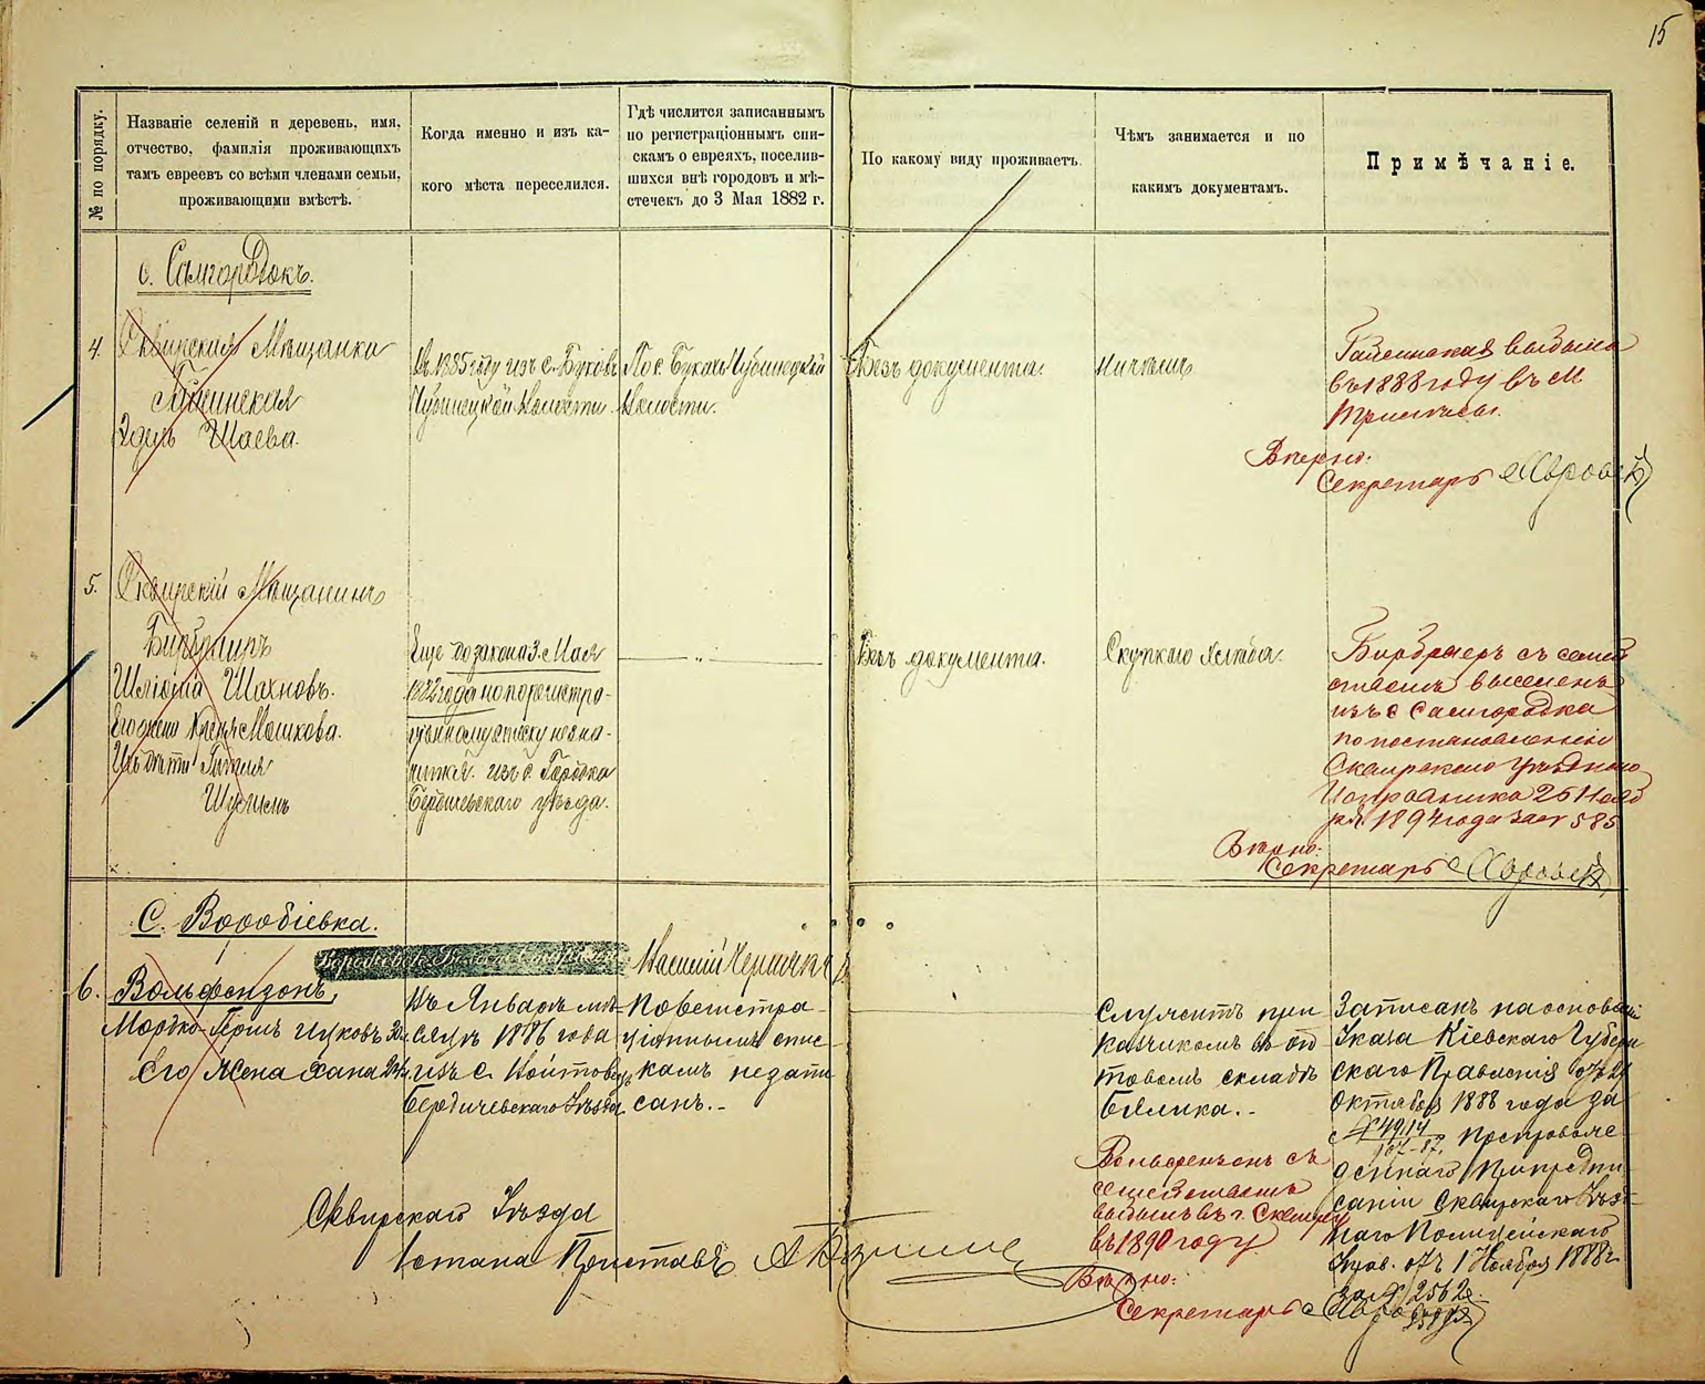 15
№ по порядку.
Названіе селеній и деревень, имя,
отчество, фамилія проживающихъ
тамъ евреевъ со всѣми членами семьи,
проживающими вмѣстѣ.
Когда именно и изъ ка-
кого мѣста переселился.
Гдѣ числится записаннымъ
по регистраціоннымъ спи-
скамъ о евреяхъ, поселив-
шихся внѣ городовъ и мѣ-
стечекъ до 3 Мая 1882 г.
По какому виду проживаетъ.
Чѣмъ занимается и по
какимъ документамъ.
Примѣчаніе.
с. Самгородокъ.
4.
Сквирская Мѣщанка
Гайсинская
Шаева.
Въ 1885 году изъ с.
Волости.
По с.
Волости.
Безъ документа.
Ничѣмъ
Гайсинская выбыла
въ 1888 году въ м.
Вѣрно:
Секретарь
5.
Сквирскій Мѣщанинъ
Бирбраиръ
Шлiома Шахновъ.
Его жена Мошкова.
Ихъ дѣти
Еще до закона 3. Мая
1882 года но по регистра-
ціонному списку не зна-
чится. изъ с. Городка
Бердичевскаго уѣзда.
— „ —
Безъ документа.
Скупкаю хлѣба.
Бирбраеръ съ семей
ствомъ выселенъ
изъ с Самгородка
по постановленію
Сквирскаго Уѣзднаго
Исправника 25 Нояб
ря 1894 года за № 585
Вѣрно:
Секретарь
С. Воробіевка.
6.
Вольфензонъ,
Мордко-Гершъ Ицковъ
Его жена Хана
Въ Январѣ мѣ-
сяцѣ 1886 года
изъ с.
Бердичевскаго Уѣзда
По регистра-
ціоннымъ спис-
камъ не запи
санъ.-
Служитъ при
кащикомъ въ
складѣ
Бялика.-
Записанъ на основаніи
Указа Кіевскаго Губерн
скаго Правленія отъ 21
Октября 1888 года за
№ 49114
саніи Сквирскаго Уѣзд-
наго Полицейскаго
Управ. отъ 1 Ноября 1888 г.
Вольфензонъ съ
семействомъ
выбылъ въ г. Сквиру
въ 1890 году
Вѣрно:
Секретарь
Сквирскаго Уѣзда
4 стана Приставъ